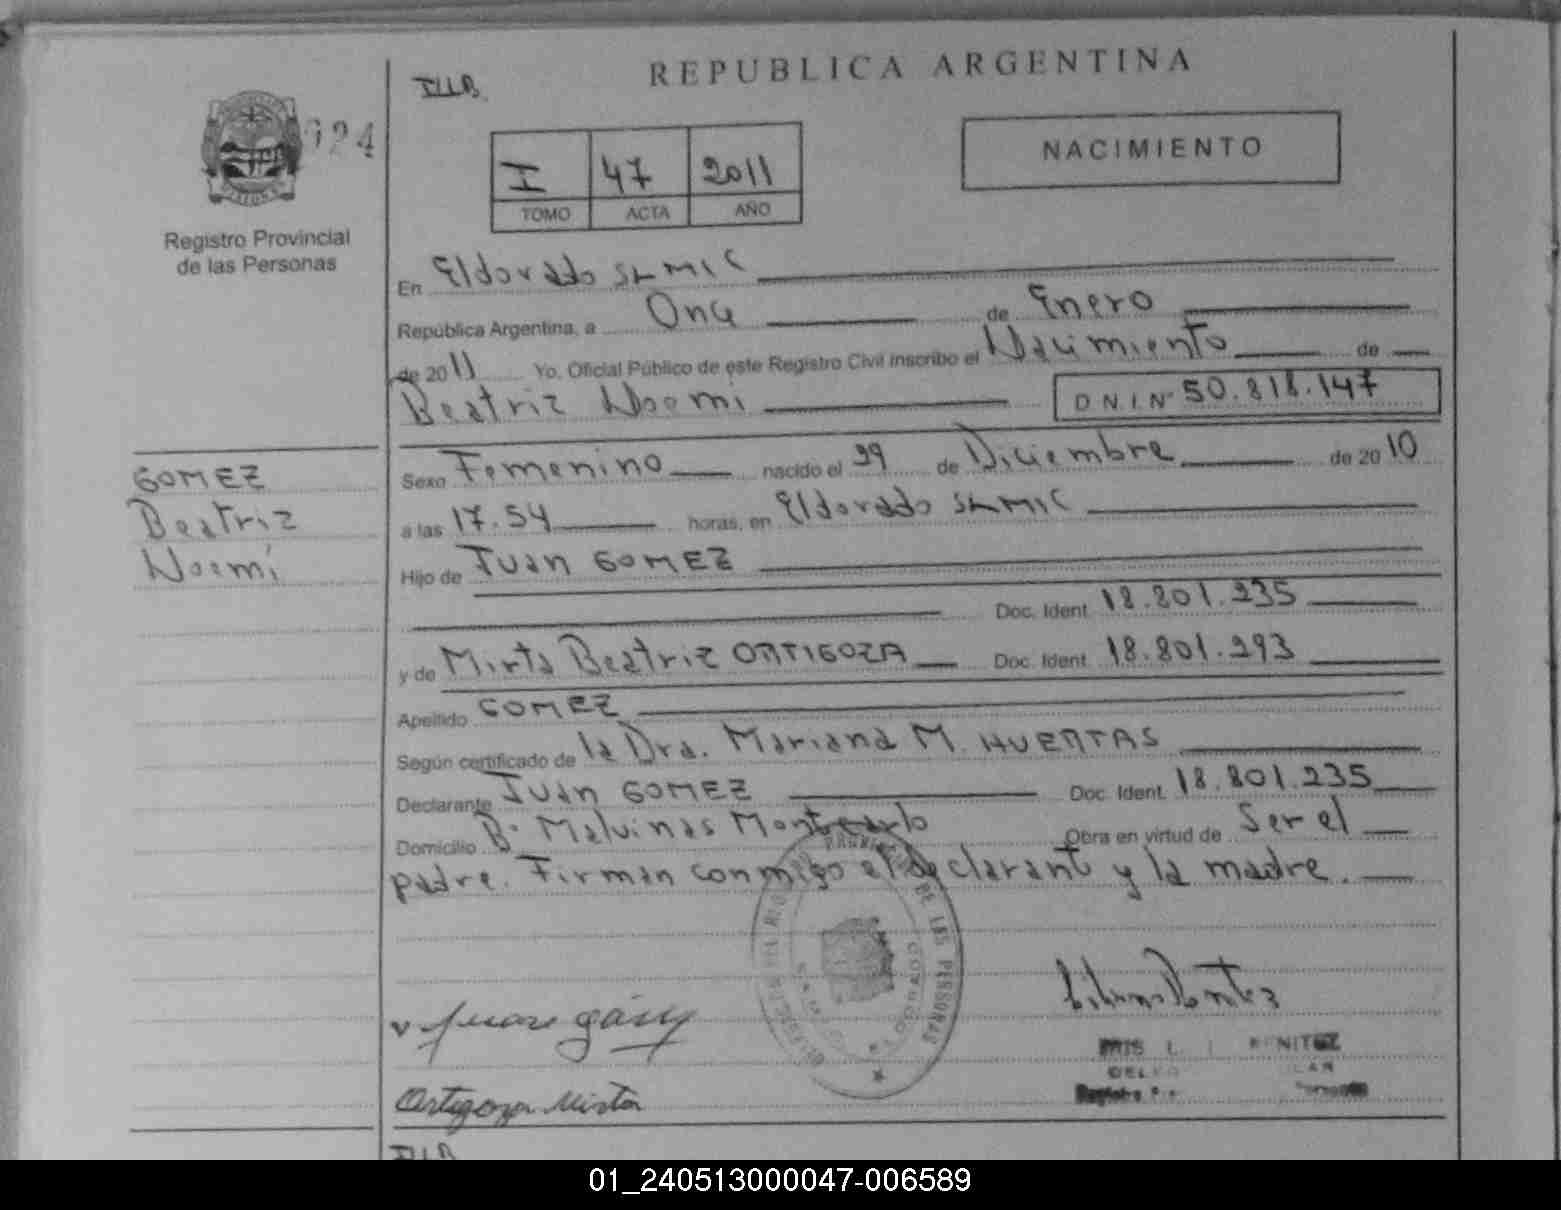 REPUBLICA ARGENTINA
924
I 47 2011
TOMO ACTA AÑO
NACIMIENTO
Registro Provincial
de las Personas
En Eldorado
República Argentina, a Once de Enero
de 2011 Yo, Oficial Público de este Registro Civil inscribo el Nacimiento de
Beatriz Noemi D.N.I.Nº 50.818.147
GOMEZ
Beatriz
Noemi
Sexo Femenino nacido el 29 de Diciembre de 2010
a las 17.54 horas, en Eldorado
Hijo de Juan GOMEZ
Doc. Ident. 18.801.235
y de Mirta Beatriz ORTIGOZA Doc. Ident. 18.801.293
Apellido GOMEZ
Según certificado de la Dra. Mariana M. HUERTAS
Declarante Juan GOMEZ Doc. Ident. 18.801.235
Domicilio Bº Malvinas Montecarlo Obra en virtud de Ser el
padre. Firman conmigo el declarante y la madre.
DE LAS PERSONAS
ELDORADO
Ortigoza Mirta
BENITEZ
01_240513000047-006589